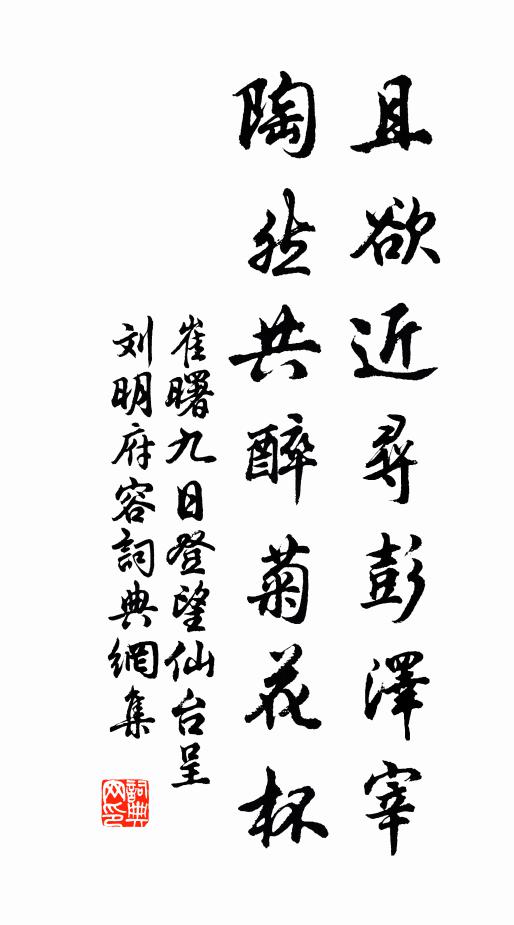 且欲近尋彭澤宰
陶然共醉菊花杯
崔曙九日登望仙台呈
刘明府容詞典網集
詞典
网印